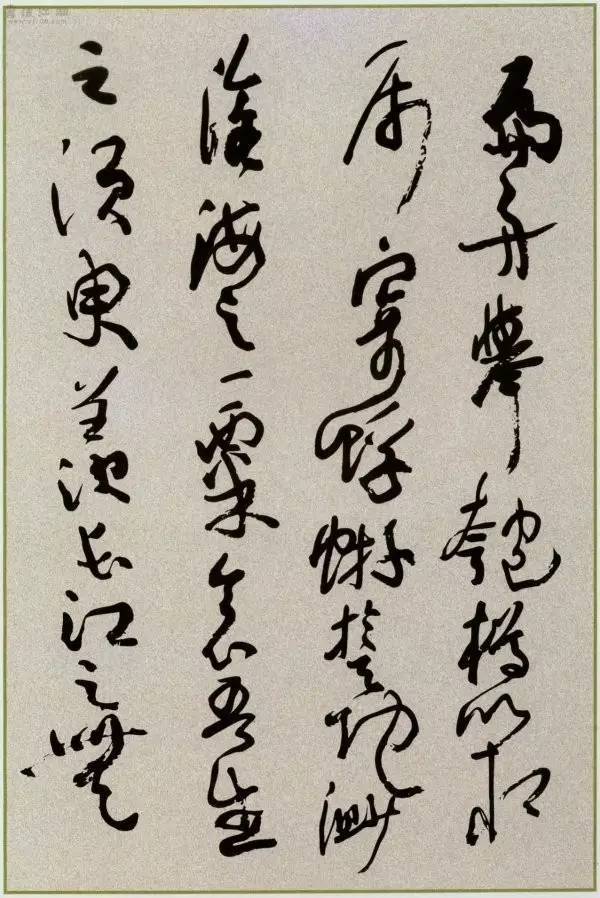 扁舟舉匏樽以相
属寄蜉蝣於天地渺
滄海之一粟哀吾生
之須臾羨長江之無